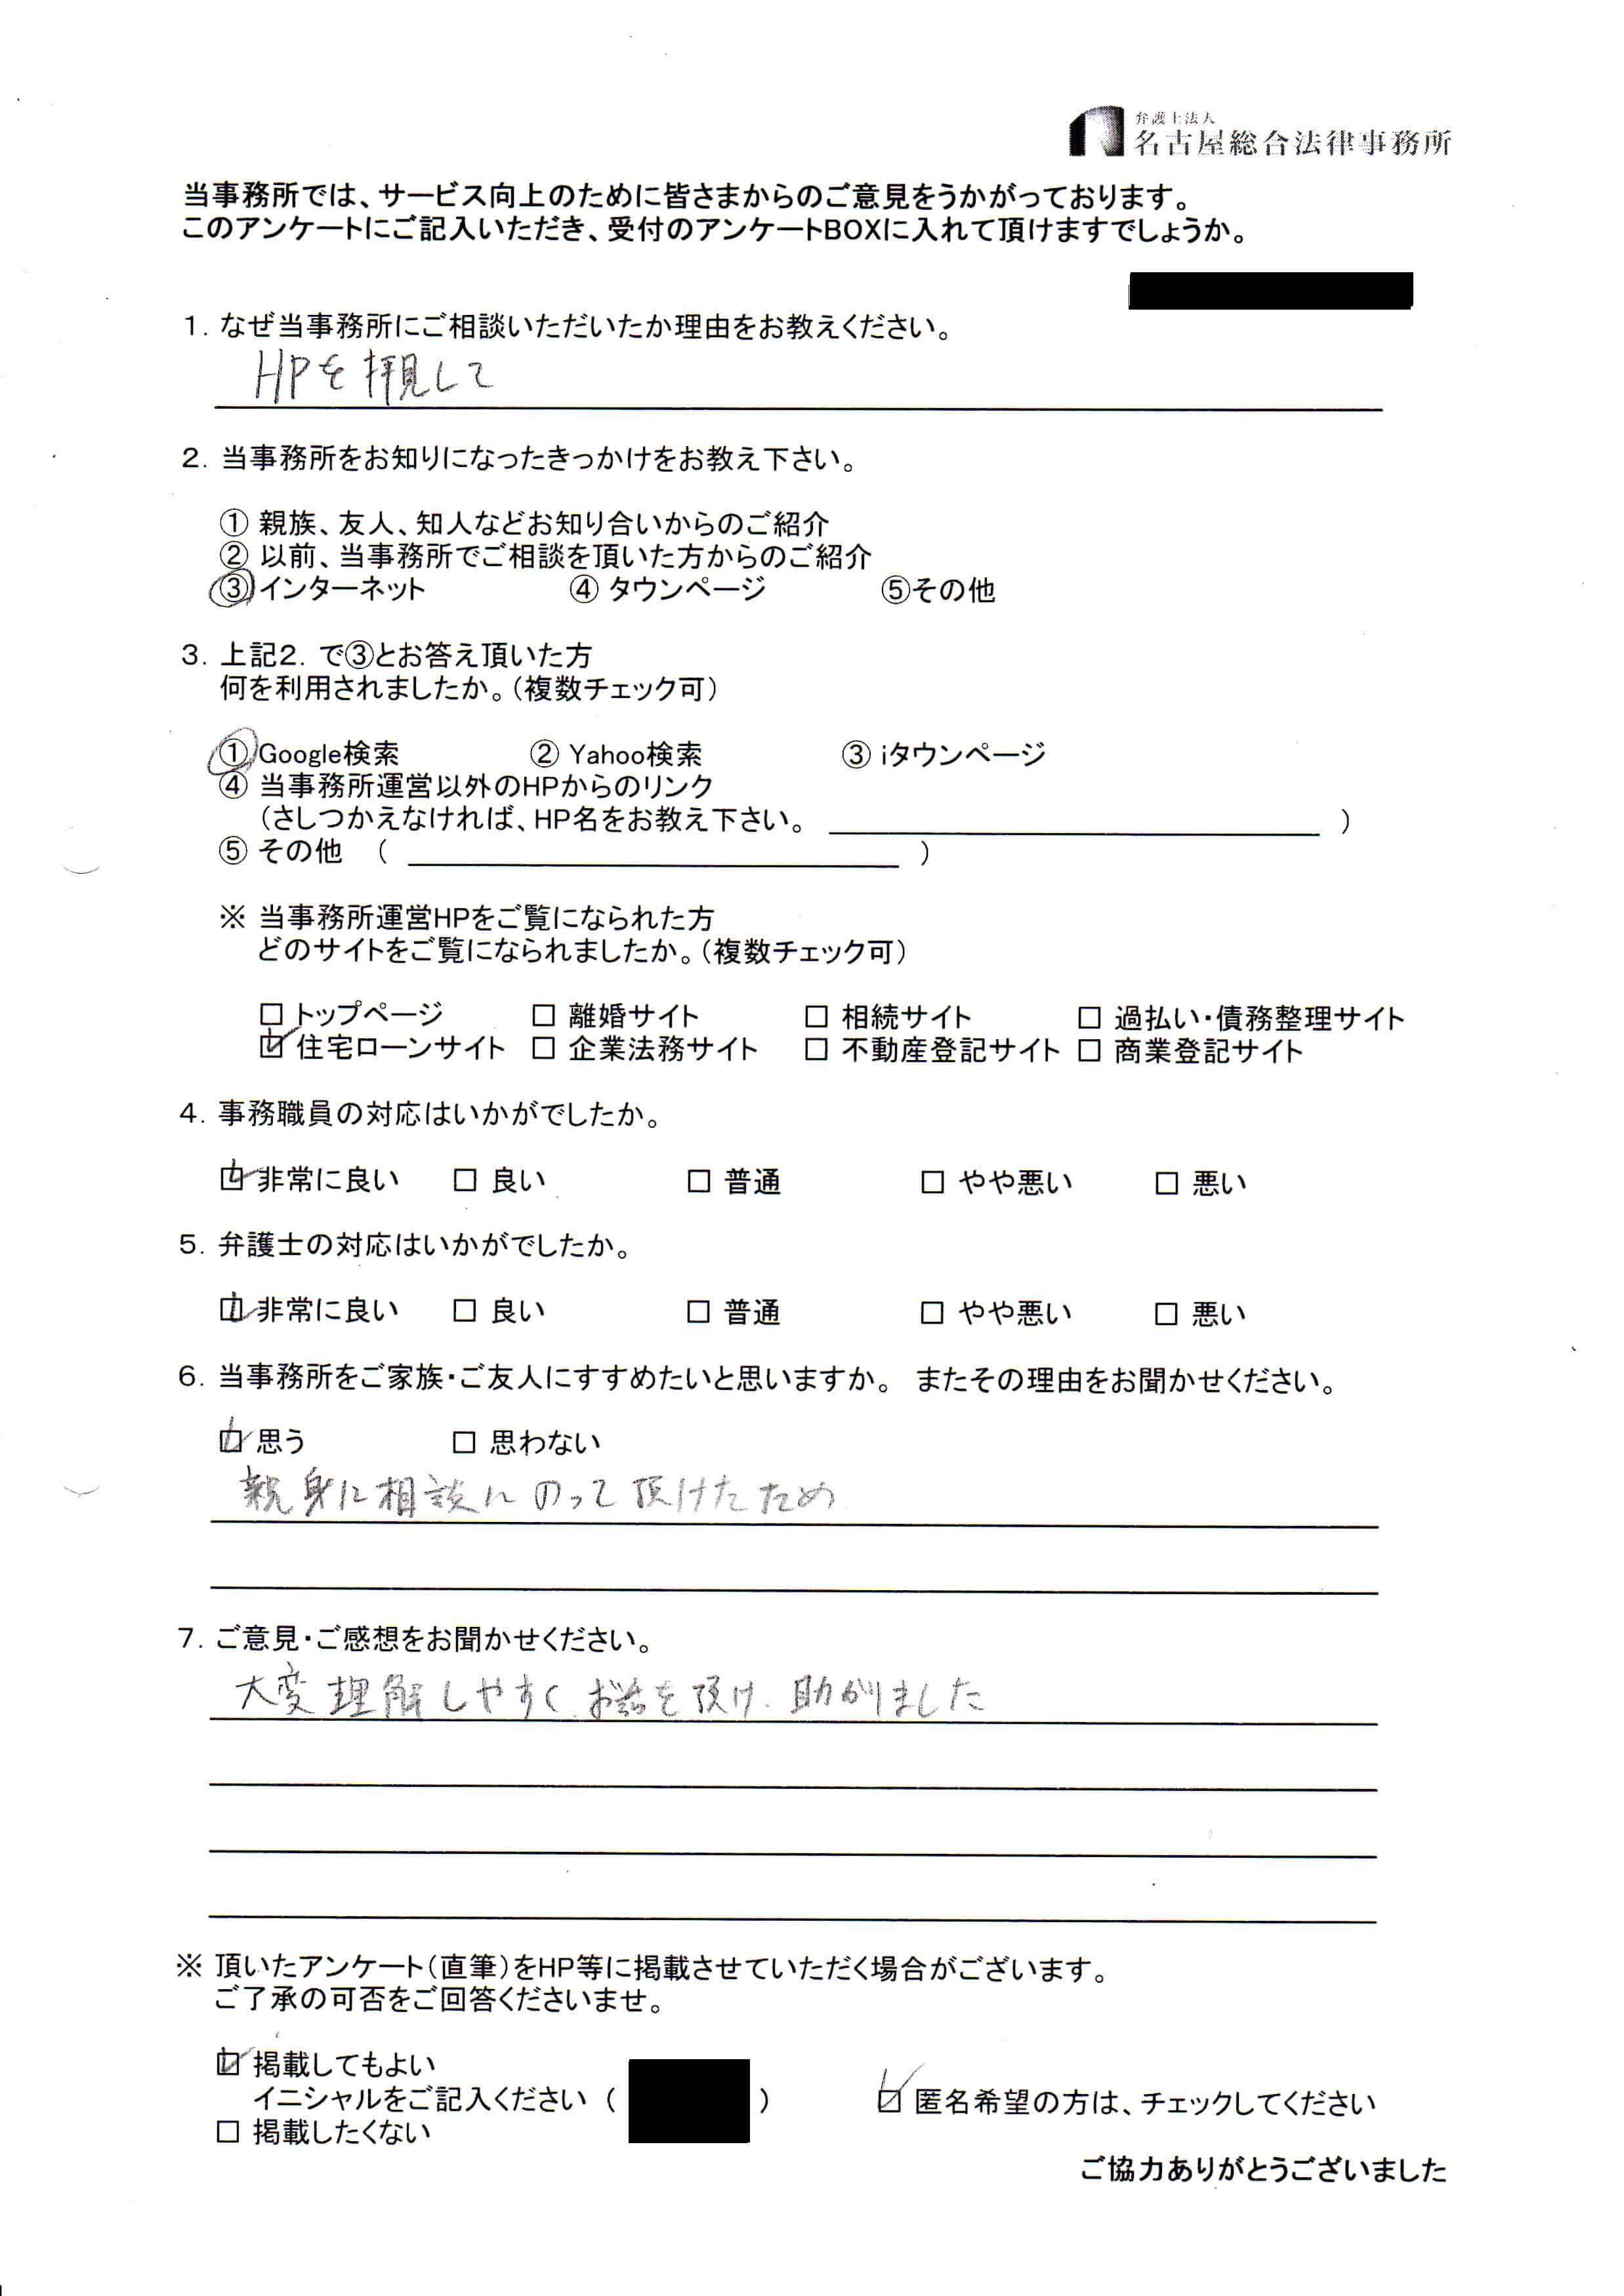 弁護士法人
名古屋総合法律事務所
当事務所では、サービス向上のために皆さまからのご意見をうかがっております。
このアンケートにご記入いただき、受付のアンケートBOXに入れて頂けますでしょうか。
1. なぜ当事務所にご相談いただいたか理由をお教えください。
HPを拝見して
2. 当事務所をお知りになったきっかけをお教え下さい。
① 親族、友人、知人などお知り合いからのご紹介
② 以前、当事務所でご相談を頂いた方からのご紹介
③インターネット ④ タウンページ ⑤その他
3. 上記2. で③とお答え頂いた方
何を利用されましたか。(複数チェック可)
① Google検索 ② Yahoo検索 ③ iタウンページ
④ 当事務所運営以外のHPからのリンク
(さしつかえなければ、HP名をお教え下さい。 )
⑤ その他 ( )
※ 当事務所運営HPをご覧になられた方
どのサイトをご覧になられましたか。(複数チェック可)
□ トップページ □ 離婚サイト □ 相続サイト □ 過払い・債務整理サイト
☑ 住宅ローンサイト □ 企業法務サイト □ 不動産登記サイト □ 商業登記サイト
4. 事務職員の対応はいかがでしたか。
☑ 非常に良い □ 良い □ 普通 □ やや悪い □ 悪い
5. 弁護士の対応はいかがでしたか。
☑ 非常に良い □ 良い □ 普通 □ やや悪い □ 悪い
6. 当事務所をご家族・ご友人にすすめたいと思いますか。 またその理由をお聞かせください。
☑ 思う □ 思わない
親身に相談にのって頂けたため
7. ご意見・ご感想をお聞かせください。
大変理解しやすくお話を頂け、助かりました
※ 頂いたアンケート(直筆)をHP等に掲載させていただく場合がございます。
ご了承の可否をご回答くださいませ。
☑ 掲載してもよい
イニシャルをご記入ください ( ) ☑ 匿名希望の方は、チェックしてください
□ 掲載したくない
ご協力ありがとうございました